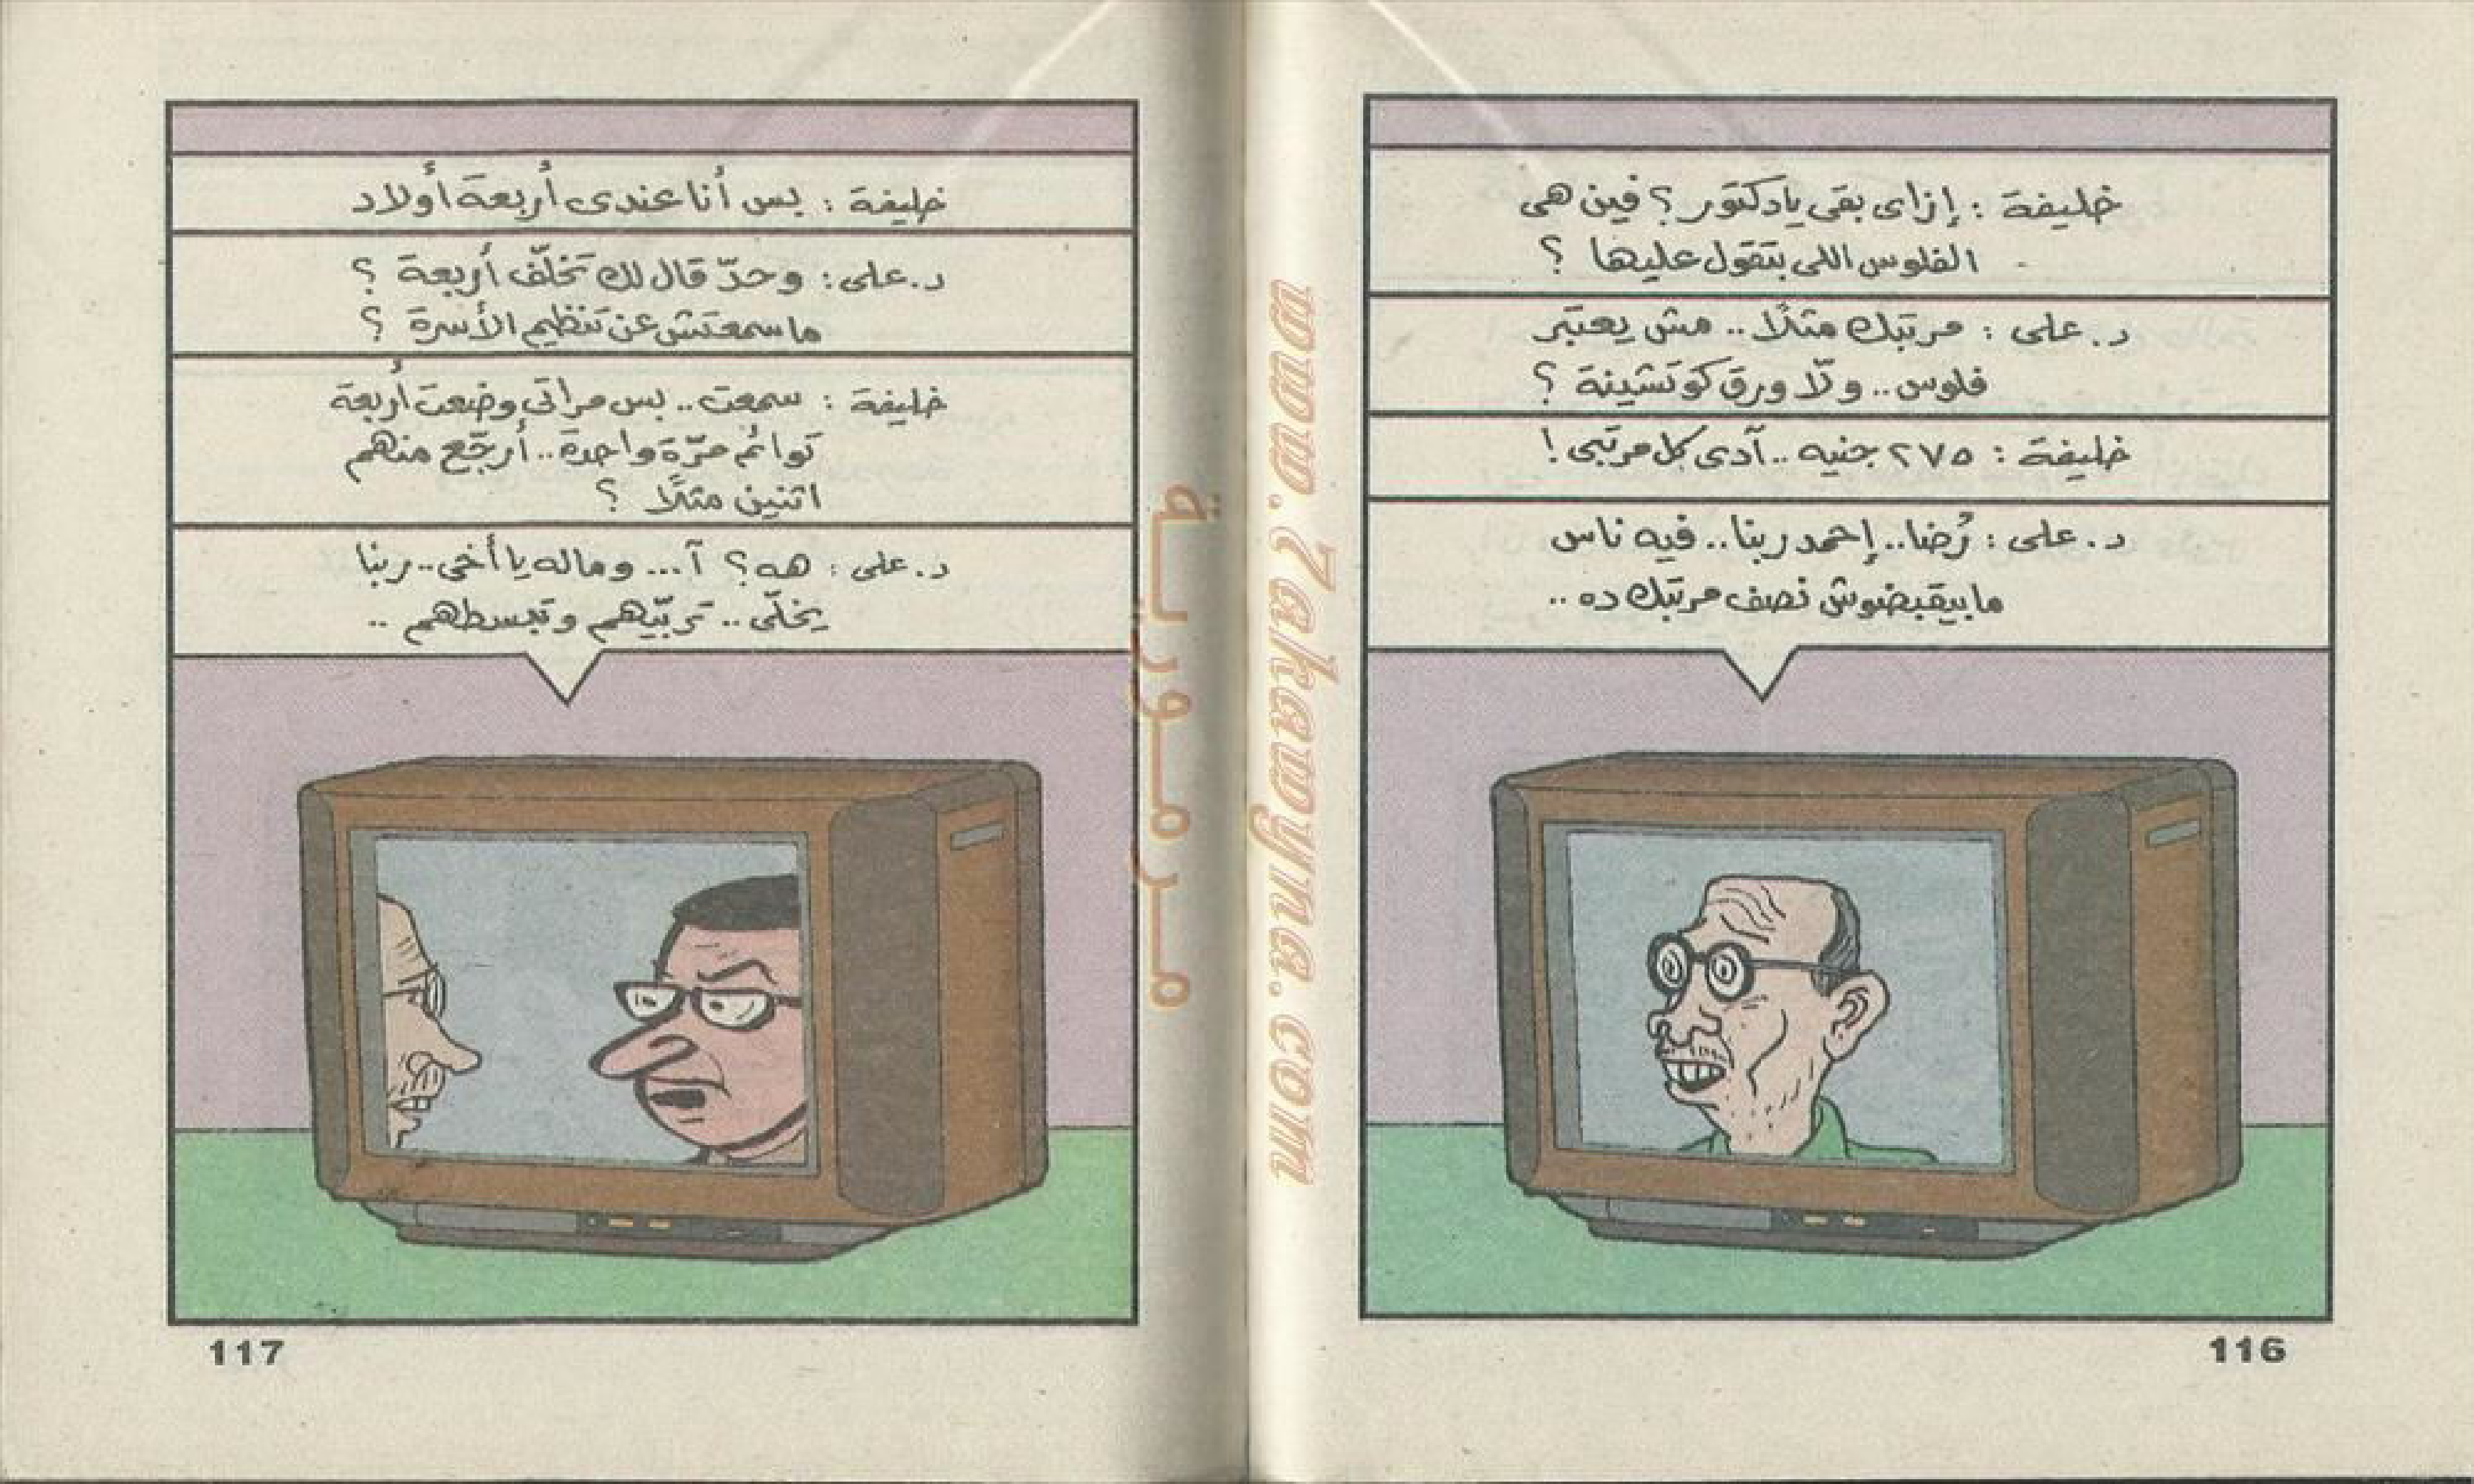 خليفة : إزاى بقى يا دكتور ؟ فين هى
الفلوس اللى بتقول عليها ؟
د. على : مرتبك مثلًا .. مش يعتبر
فلوس .. ولّا ورق كوتشينة ؟
خليفة : ٢٧٥ جنيه .. آدى كل مرتبى !
د. على : رُضا .. إحمد ربنا .. فيه ناس
ما بيقبضوش نصف مرتبك ده ..
116
خليفة : بس أنا عندى أربعة أولاد
د. على : وحدّ قال لك تخلّف أربعة ؟
ما سمعتش عن تنظيم الأسرة ؟
خليفة : سمعت .. بس مراتى وضعت أربعة
توائم مرّة واحدة .. أرجّع منهم
اتنين مثلًا ؟
د. على : هه ؟ آ ... وماله يا أخى .. ربنا
يخلّى .. تربّيهم وتبسطهم ..
117
مرمورية
www.7akawyna.com